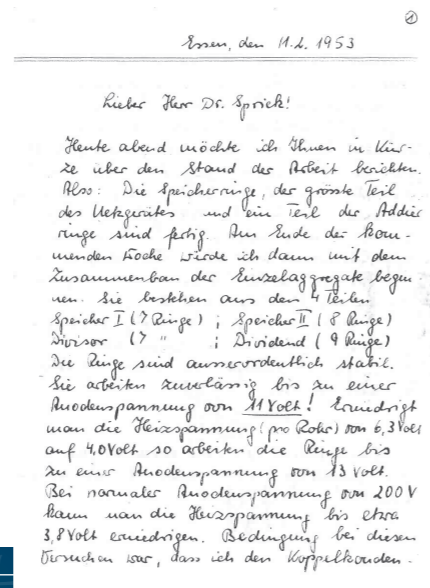 1
Essen, den 11.2. 1953
Lieber Herr Dr. Sprick!
Heute abend möchte ich Ihnen in Kür-
ze über den Stand der Arbeit berichten.
Also: Die Speicherringe, der grösste Teil
des Netzgerätes und ein Teil der Addier
ringe sind fertig. Am Ende der kom-
menden Woche würde ich dann mit dem
Zusammenbau der Einzelaggregate begin
nen. Sie bestehen aus den 4 Teilen
Speicher I (7 Ringe) ; Speicher II (8 Ringe)
Divisor (7 " ; Dividend (9 Ringe)
Die Ringe sind ausserordentlich stabil.
Sie arbeiten zuverlässig bis zu einer
Anodenspannung von 11 Volt! Erniedrigt
man die Heizspannung (pro Rohr) von 6,3 Volt
auf 4,0 Volt so arbeiten die Ringe bis
zu einer Anodenspannung von 13 Volt.
Bei normaler Anodenspannung von 200 V
kann man die Heizspannung bis etwa
3,8 Volt erniedrigen. Bedingung bei diesen
Versuchen war, dass ich den Koppelkonden-